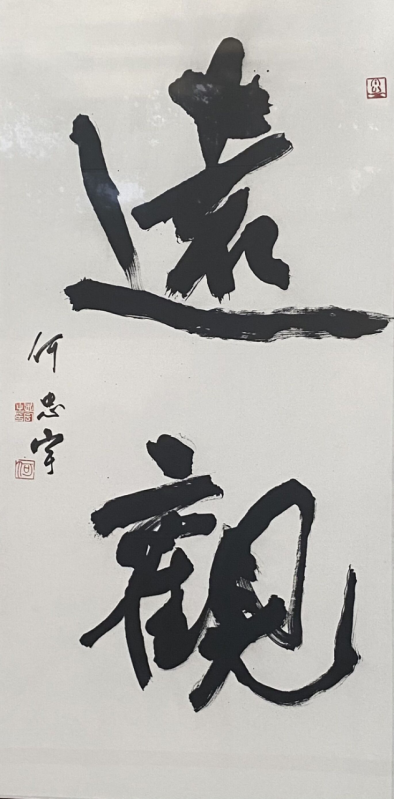 遠觀
何忠宇